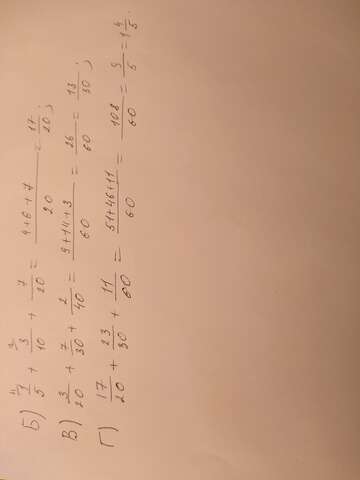 Б) 1/5 + 3/10 + 7/20 = (4+6+7)/20 = 17/20;
В) 3/20 + 7/30 + 2/40 = (9+14+3)/60 = 26/60 = 13/30;
Г) 17/20 + 23/30 + 11/60 = (51+46+11)/60 = 108/60 = 9/5 = 1 4/5.